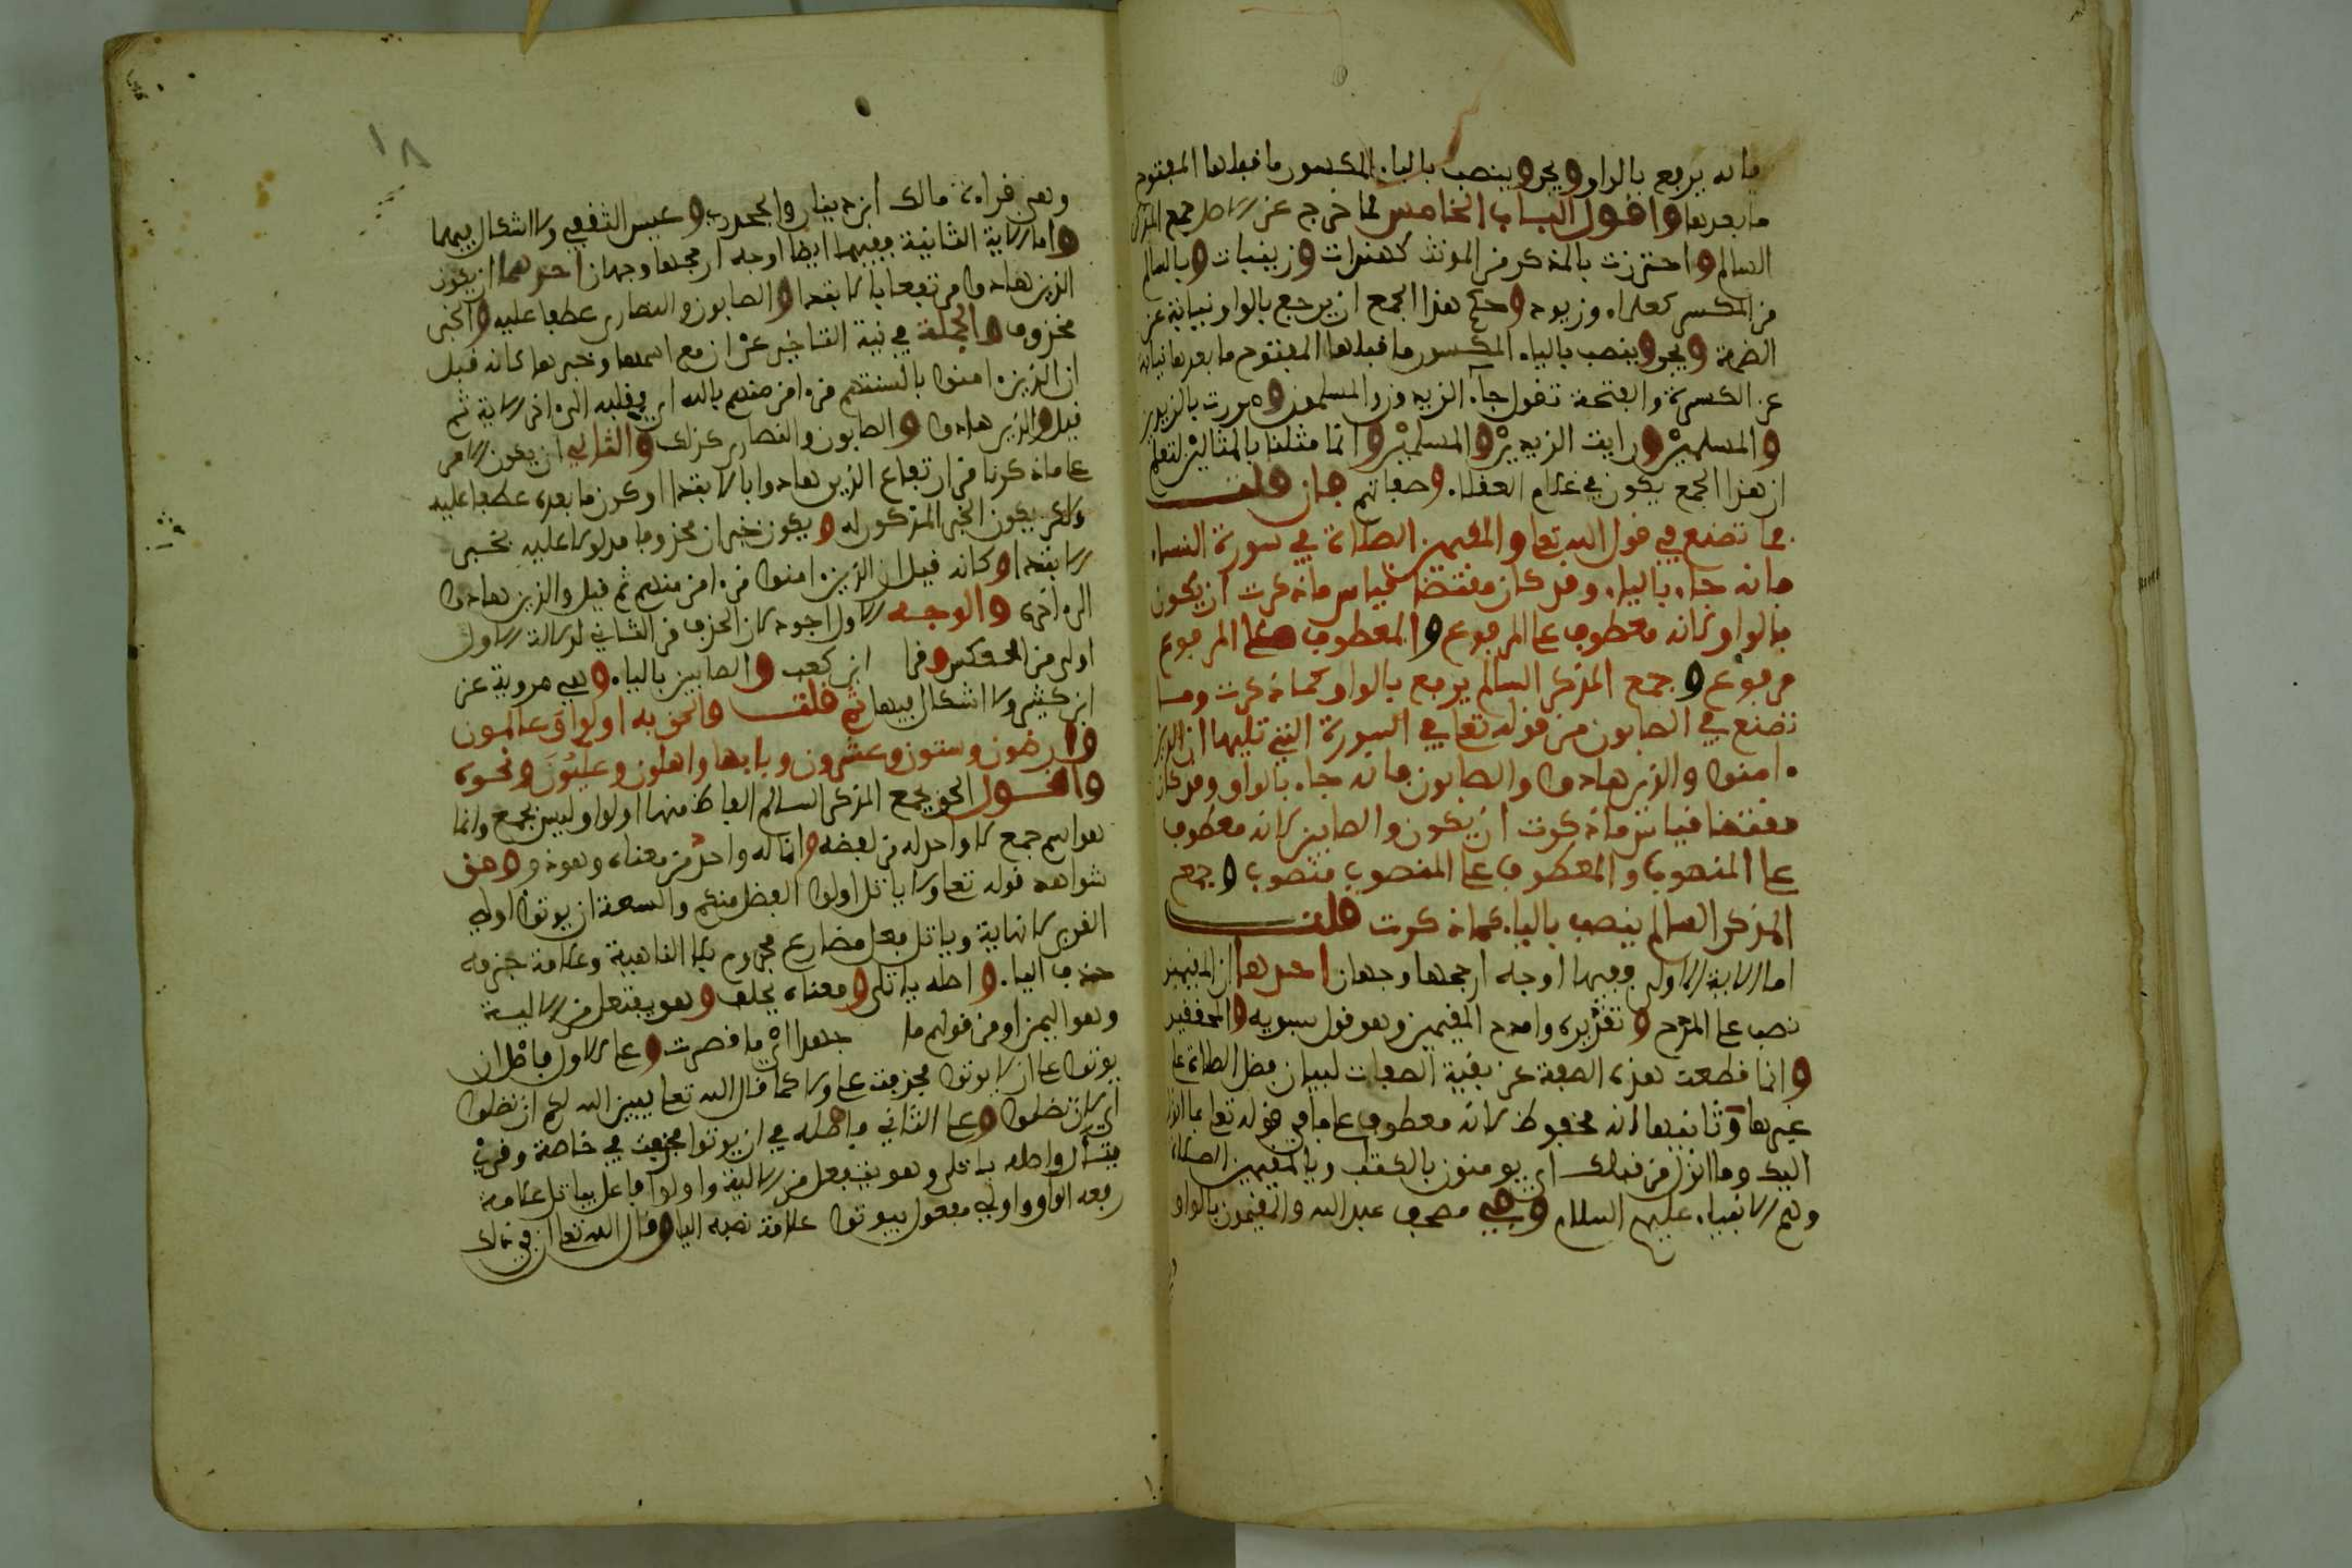 فانه يرفع بالواو ويجر وينصب بالياء المكسور ما قبلها المفتوح
ما بعدها واقول الباب الخامس مما خرج عن الاصل جمع المذكر
السالم واحترزت بالمذكر من المونث كهندات وزينبات وبالسالم
من المكسر كغلمان وزيود وحكم هذا الجمع ان يرفع بالواو نيابة عن
الضمة ويجر وينصب بالياء المكسور ما قبلها المفتوح ما بعدها نيابة
عن الكسرة والفتحة تقول جآء الزيدون والمسلمون ومررت بالزيدين
والمسلمين ورايت الزيدين والمسلمين وانما مثلنا بالمثالين لتعلم
ان هذا الجمع يكون في اعلام العقلاء وصفاتهم فان قلت
فما تصنع في قول الله تعا والمقيمين الصلاة في سورة النساء
فانه جاء بالياء وقد كان مقتضا قياس ما ذكرت ان يكون
بالواو لانه معطوف على المرفوع والمعطوف على المرفوع
مرفوع وجمع المذكر السالم يرفع بالواو كما ذكرت وما
تصنع في الصابون من قوله تعا في السورة التي تليها ان الذين
ءامنوا والذين هادوا والصابون فانه جاء بالواو وقد كان
مقتضا قياس ما ذكرت ان يكون والصابين لانه معطوف
على المنصوب والمعطوف على المنصوب منصوب وجمع
المذكر السالم ينصب بالياء كما ذكرت قلت
اما الاية الاولى ففيها اوجه ارجحها وجهان احدها ان المقيمين
نصب على المدح وتقديره وامدح المقيمين وهو قول سبويه والمحققين
وانما قطعت هذه الصفة عن بقية الصفات لبيان فضل الصلاة على
غيرها وثانيها انه مخفوظ لانه معطوف على ما في قوله تعا بما انزل
اليك وما انزل من قبلك اي يومنون بالكتب وبالمقيمين الصلاة
وهم الانبياء عليهم السلام وفي مصحف عبد الله والمقيمون بالواو
١٨
وهي قراءة مالك ابن دينار والجحدري وعيسى الثقفي ولا اشكال فيها
واما الاية الثانية ففيها ايضا اوجه ارجحها وجهان احدهما ان يكون
الذين هادوا مرتفعا بالابتدا والصابون والنصارى عطفا عليه والخبر
محذوف والجملة في نية التاخير عن ان مع اسمها وخبرها كانه قيل
ان الذين ءامنوا بالسنتهم من ءامن منهم بالله اي بقلبه الى ءاخر الاية ثم
قيل والذين هادوا والصابون والنصارى كذلك والثاني ان يكون الامر
على ما ذكرنا من ارتفاع الذين هادوا بالابتدا وكون ما بعده عطفا عليه
ولكن يكون الخبر المذكور له ويكون خبر ان محذوفا مدلولا عليه بخبر
الابتدا وكانه قيل ان الذين ءامنوا من ءامن منهم ثم قيل والذين هادوا
الى ءاخره والوجه الاول اجود لان الحذف من الثاني لدلالة الاول
اولى من العكس وقرا ابن كعب والصابين بالياء وهي مروية عن
ابن كثير ولا اشكال فيها ثم قلت والحق به اولوا وعالمون
وارضون وسنون وعشرون وبابها واهلون وعليون ونحوه
واقول الحق بجمع المذكر السالم الفاظ منها اولوا وليس بجمع وانما
هو اسم جمع لا واحد له من لفضه وانما له واحد من معناه وهو ذو ومن
شواهده قوله تعا ولا ياتل اولوا الفضل منكم والسعة ان يوتوا اولي
القربى لا ناهية وياتل فعل مضارع مجزوم بلا الناهية وعلامة جزمه
حذف الياء واصله ياتلي ومعناه يحلف وهو يفتعل من الالية
وهو اليمين او من قولهم ما جهدا اي ما قصرت وعلى الاول فاصل ان
يوتوا على ان لا يوتوا فحذفت على ولا كما قال الله تعا يبين الله لكم ان تضلوا
اي لان لا تضلوا وعلى الثاني فاصله في ان يوتوا فحذفت في خاصة وقرئ
يتأل واصله يتالى وهو يتفعل من الالية واولوا فاعل ياتل علامة
رفعه الواو واولي مفعول بيوتوا علامة نصبه الياء وقال الله تعا ان في ذلك